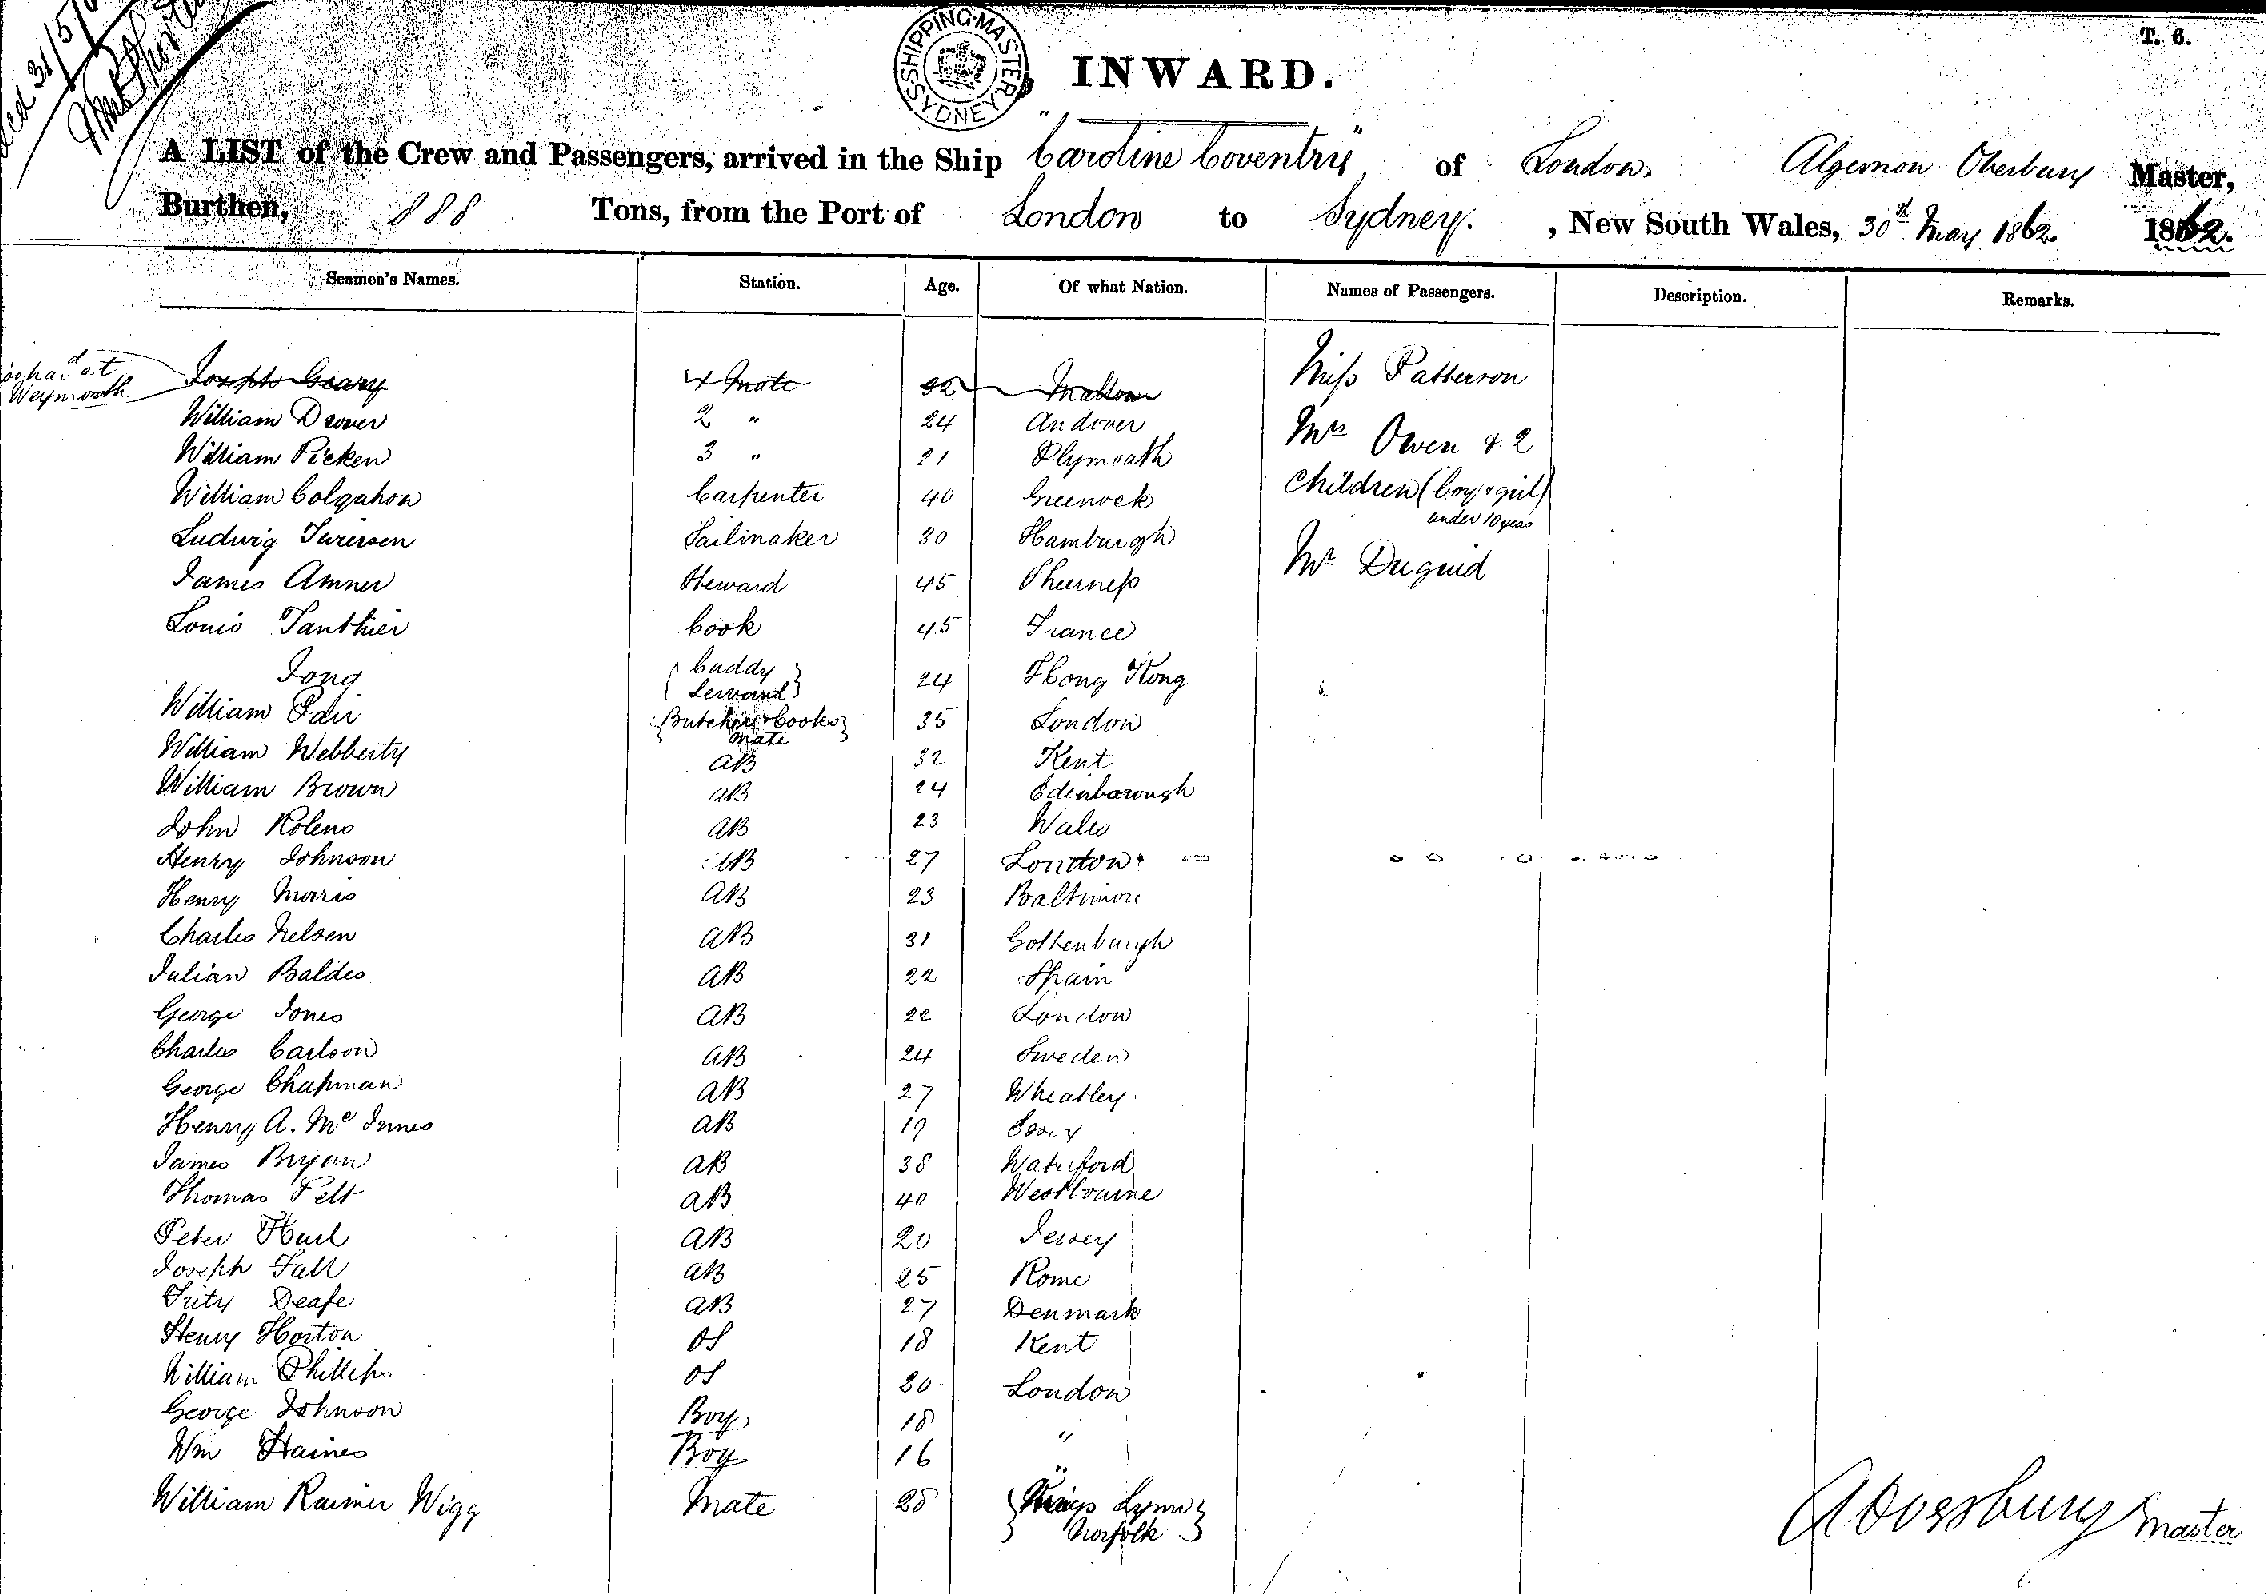 SHIPPING MASTER SYDNEY
T. 6.
INWARD.
A LIST of the Crew and Passengers, arrived in the Ship "Caroline Coventry" of London. Algernon Oberbury Master,
Burthen, 888 Tons, from the Port of London to Sydney. , New South Wales, 30th May 1862. 1862.
Seamen's Names. Station. Age. Of what Nation. Names of Passengers. Description. Remarks.
at Weymouth
Joseph Geary 1 Mate 32 Malton Miss Patterson
William Drover 2 " 24 Andover Mrs Owen & 2
William Picken 3 " 21 Plymouth Children (boy & girl)
under 10 years
William Colqahon Carpenter 40 Greenock
Ludwig Iwersen Sailmaker 30 Hamburgh Mr Duguid
James Amner Steward 45 Sheerness
Louis Panthier Cook 45 France
Jong {Cuddy Servant} 24 Hong Kong
William Pair {Butcher & Cooks Mate} 35 London
William Webberty AB 32 Kent
William Brown AB 24 Edenborough
John Kolens AB 23 Wales
Henry Johnson AB 27 London
Henry Morris AB 23 Baltimore
Charles Nelsen AB 31 Gottenburgh
Julian Baldes AB 22 Spain
George Jones AB 22 London
Charles Carlson AB 24 Sweden
George Chapman AB 27 Wheatley
Henry A. Mc Innes AB 19
James Bryan AB 38 Waterford
Thomas Pelt AB 40 Westbourne
Peter Hurl AB 20 Jersey
Joseph Fall AB 25 Rome
Fritz Deafe AB 27 Denmark
Henry Horton OS 18 Kent
William Phillips OS 20 London
George Johnson Boy 18 "
Wm Haines Boy 16 "
William Raimer Wigg Mate 28 {Kings Lynn Norfolk}
A Oversbury Master